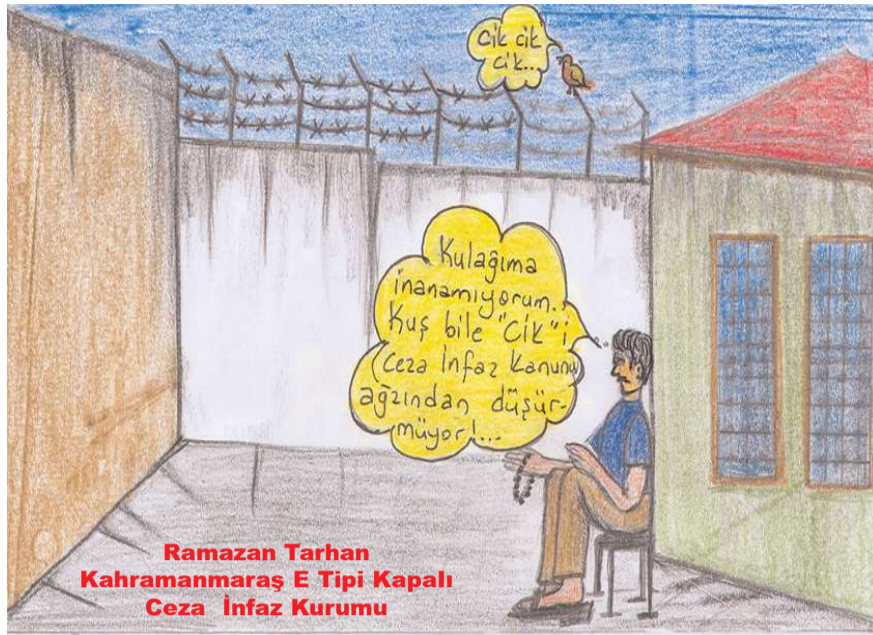 Cik cik
cik...
Kulağıma
inanamıyorum..
Kuş bile "Cik"i
(Ceza İnfaz Kanunu)
ağzından düşür-
müyor!...
Ramazan Tarhan
Kahramanmaraş E Tipi Kapalı
Ceza İnfaz Kurumu